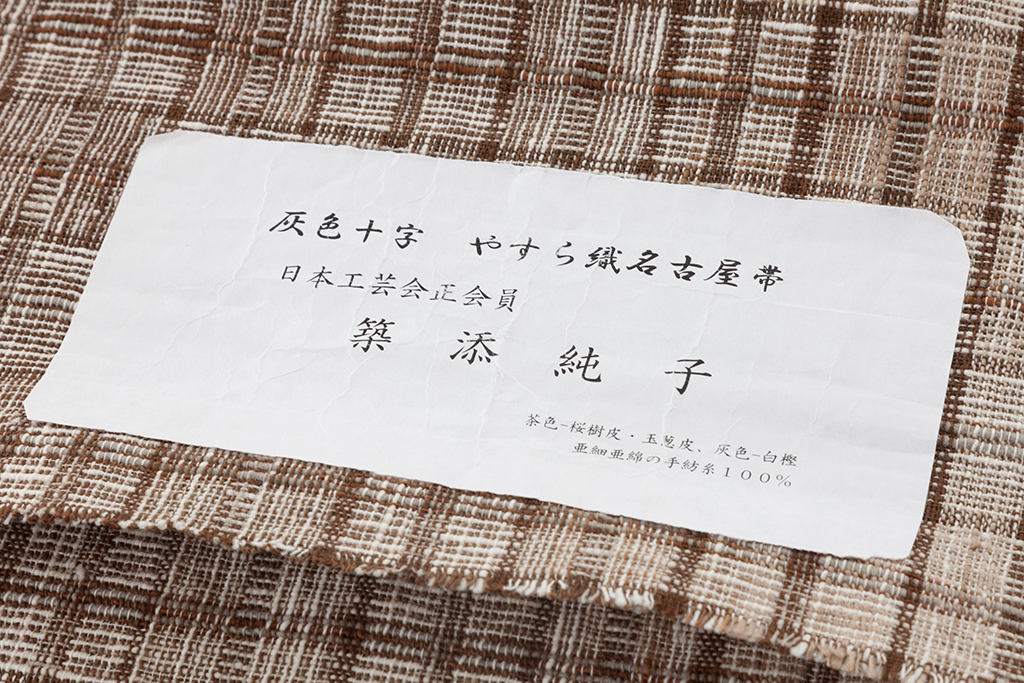 灰色十字　やすら織名古屋帯
日本工芸会正会員
築　添　純　子
茶色−桜樹皮・玉葱皮、灰色−白樫
亜細亜綿の手紡糸１００％